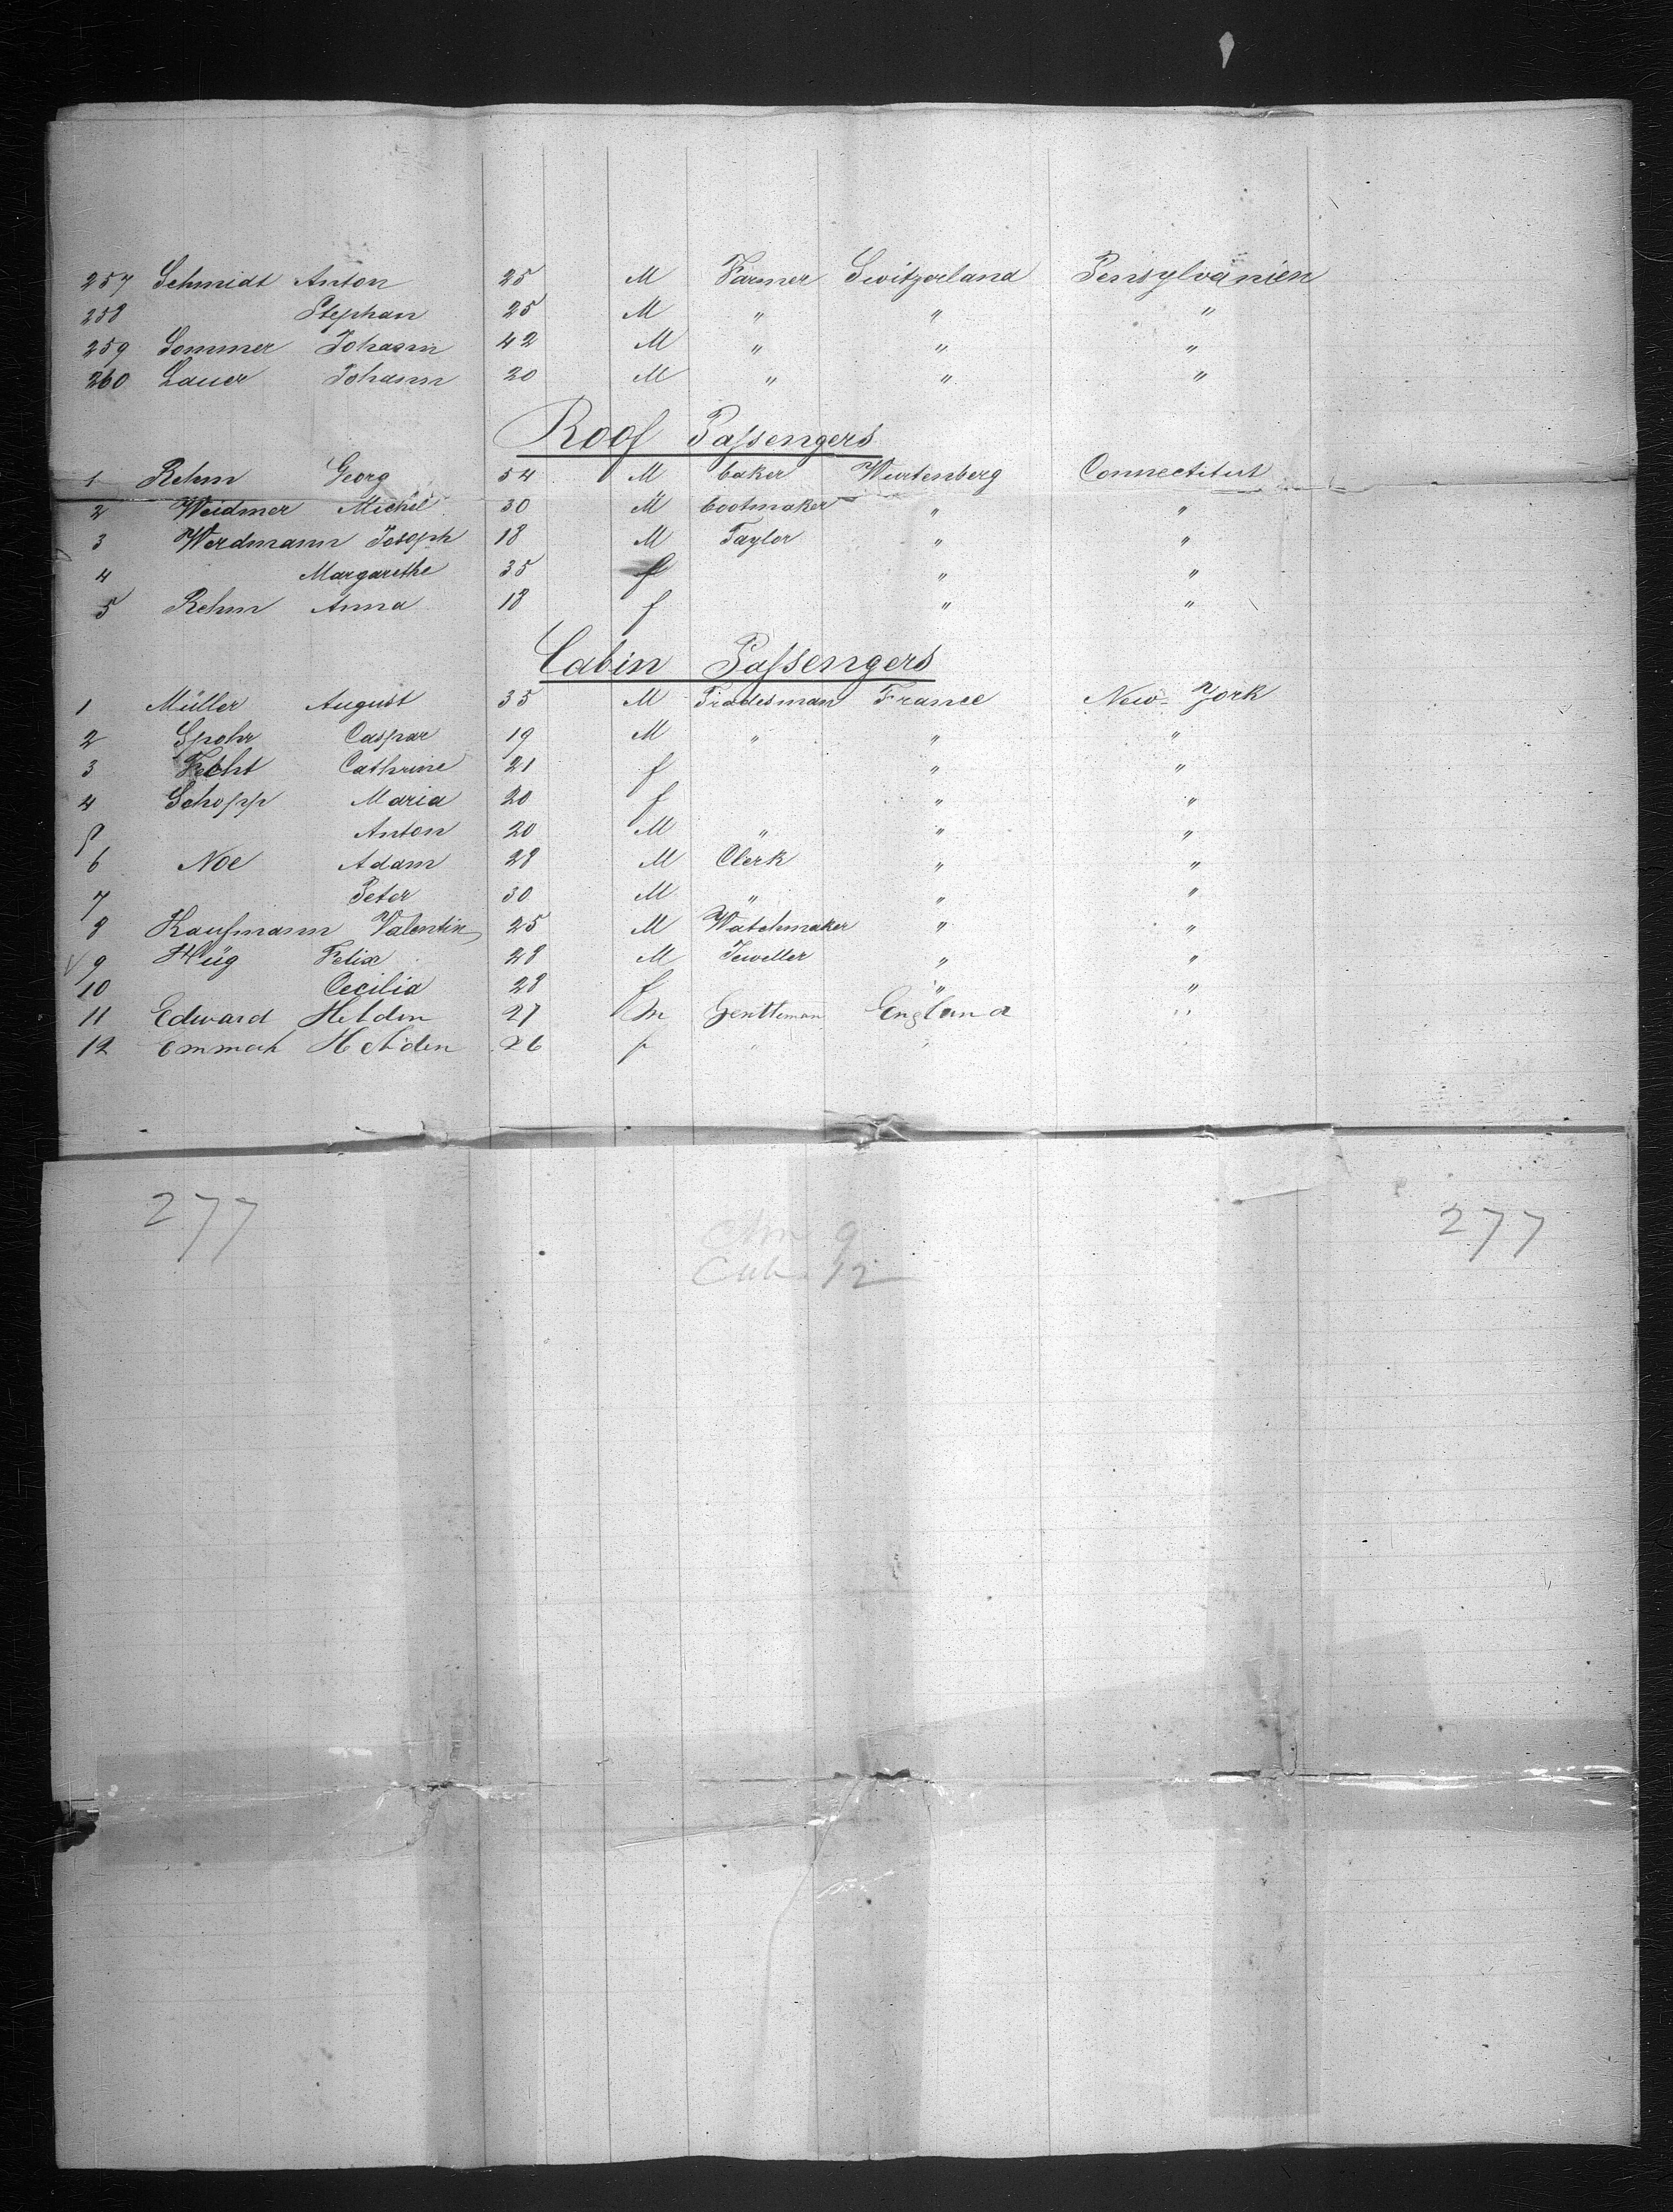 257 Schmidt Anton 25 M Farmer Switzerland Pensylvanien
258 Stephan 25 M " " "
259 Sommer Johann 42 M " " "
260 Lauer Johann 20 M " " "
Roof Passengers
1 Rehm Georg 54 M baker Wurtenberg Connectitut
2 Weidmer Michel 30 M bootmaker " "
3 Werdmann Joseph 18 M Taylor " "
4 Margarethe 35 f " "
5 Rehm Anna 18 f " "
Cabin Passengers
1 Müller August 35 M Tradesman France New-York
2 Spohr Caspar 19 M " " "
3 Fecht Cathrine 21 f " "
4 Schopp Maria 20 f " "
5 Anton 20 M " " "
6 Noe Adam 28 M Clerk " "
7 Peter 30 M " " "
8 Kaufmann Valentin 25 M Watchmaker " "
9 Hüg Felix 28 M Jeweller " "
10 Cecilia 28 f " "
11 Edward Helden 27 m Gentleman England "
12 Emmah Helden 26 f " "
277 277
9
12